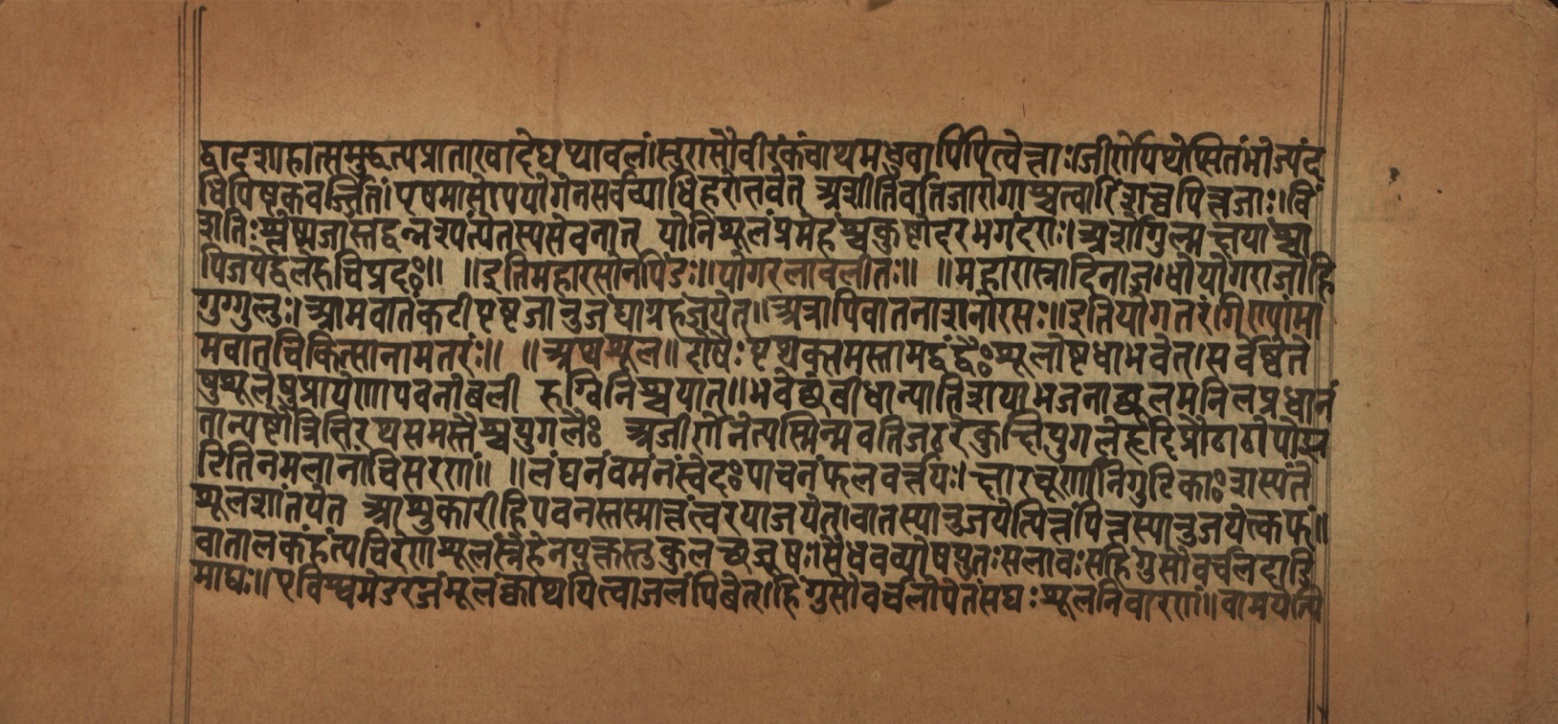 द्वादशाहात्समुद्धत्यप्राताखादेद्यथावलं।सुरासौवीरकंवाथमध्रुवापिपित्वेन्नाः।जीर्णेपिथेप्सितंभोज्यंद
धिपिष्टकवर्ज्जितं।एषमासोपयोगेनसर्वव्याधिहरोनवेत् अशीतिर्वातजारोगाश्चत्वारिंशच्चपित्तजाः।विं
शतिःश्लेष्मजास्तद्वन्नश्यंत्येतस्यसेवनात् योनिशूलंप्रमेहंश्चकुष्टोदरभगंदराः।अर्शोगुल्मक्षयांश्चा
पिजयेद्वलरुचिप्रदः॥ ॥इतिमहारसोनपिंडः॥योगरत्नावलीतः॥ ॥महारास्नादिनाज्ञ।धोयोगराजोहि
गुग्गुलुः।आमवातंकटीपृष्टजानुजंघाग्रहंजयेत्॥अत्रापिवातनाशनोरसः॥इतियोगतरंगिण्यांमा
मवातचिकित्सानामतरंः॥ ॥अथशूल॥दोषैःपृथक्समस्तामद्वंद्वैःशूलोष्टधाभवेत्।सर्वेष्वेते
षुशूलेषुप्रायेणपवनोबली रुग्विनिश्चयात्॥
तान्यष्टौत्रिभिरथसमस्तैश्चयुगलैः अजीर्णेनेत्यस्मिन्मवतिजठरेकुक्षियुगलेहृदि
रितिनमलानांविसरणं॥ ॥लंघनंवमनंस्वेदःपाचनंफलवर्त्तयः।क्षारचूर्णानिगुटिकाःशस्यंते
शूलशांतये आशुकारीहिपवनस्तस्मात्तंत्वरयाजयेत्।वातस्यानुजयेत्पित्तंपित्तस्यानुजयेत्कफं॥
वातात्मकंहंत्यचिरेणशूलंस्नेहेनयुक्तस्तुकुलत्थजूषः।सैंधवव्योषयुतःसलावःसहिंगुसौवर्चलदाडि
माद्यः॥ विश्वमेडरजंमूलंक्वाथयित्वाजलंपिबेत्।हिंगुसौवर्चलोपेतंसद्यःशूलनिवारणं॥वामयेत्पि